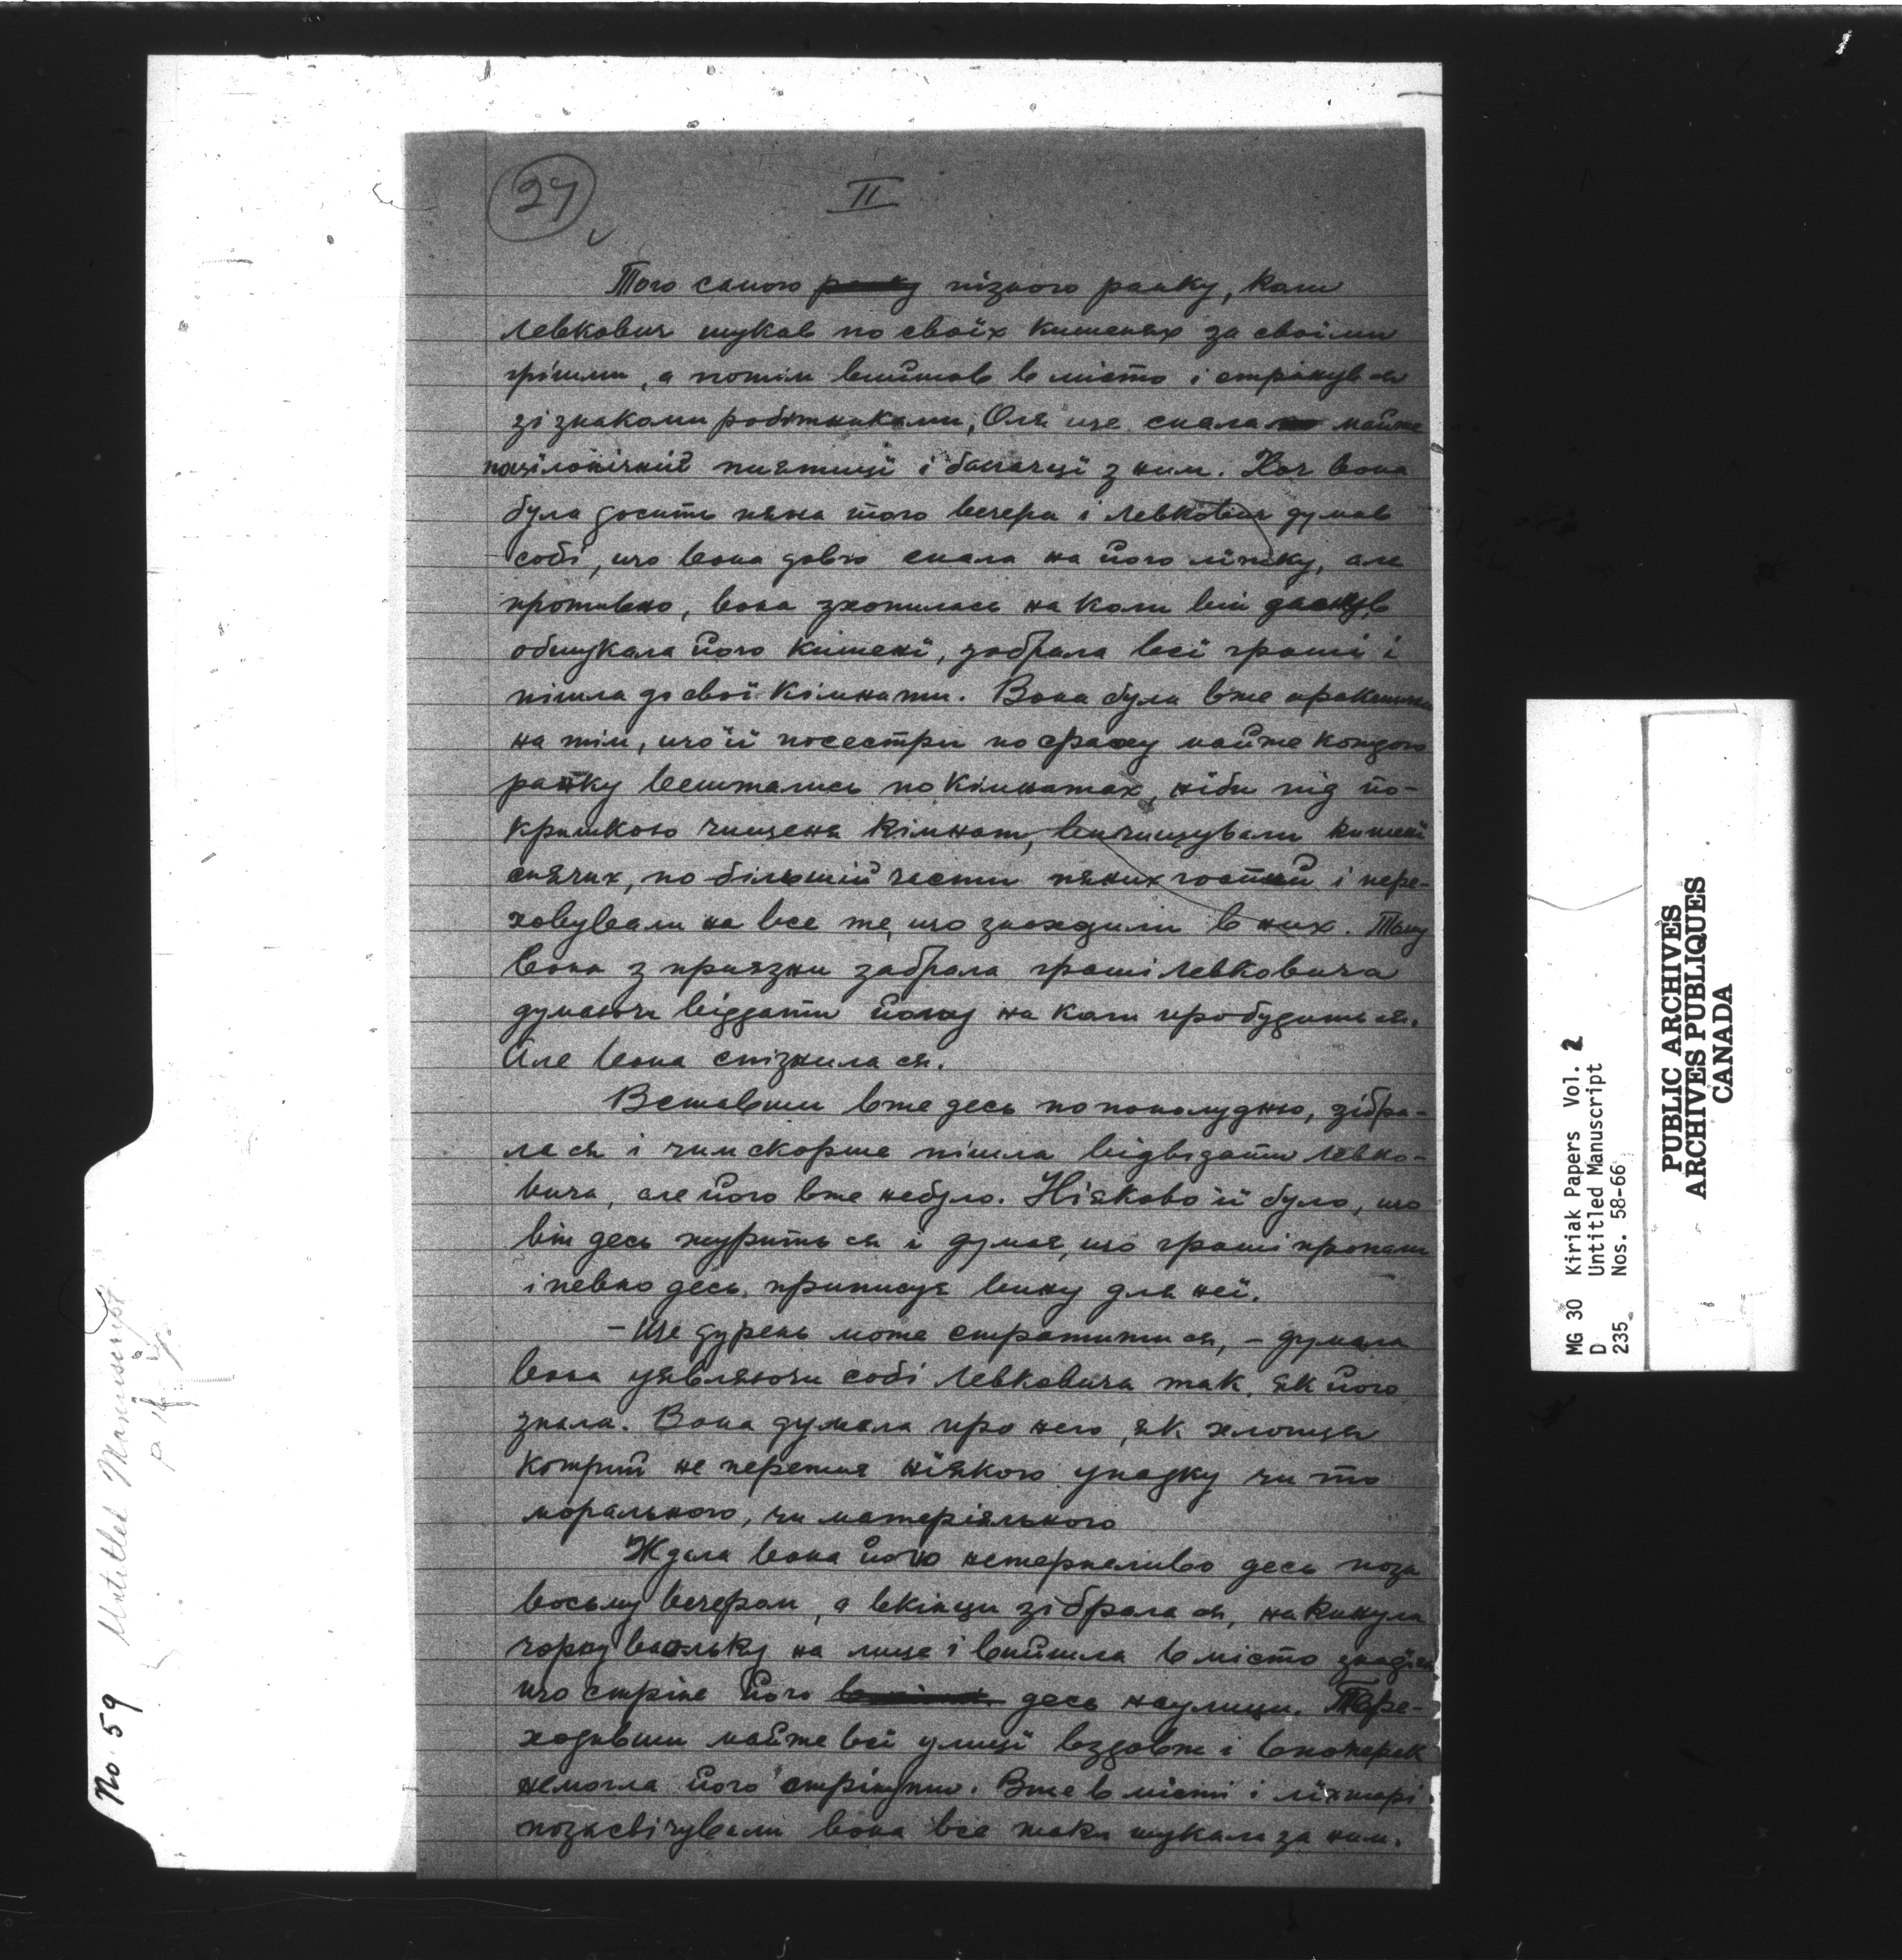 27
II
Того самого ранку пізного ранку, коли
Левкович шукав по своїх кишенях за своіми
грішми, а потім вийшов в місто і стрінув ся
зі знакоми робітниками, Оля ще спала майже
поцілонічній пиятиці і балачці з ним. Хоч вона
була досить пяна того вечера і Левкович думав
собі, що вона довго спала на його ліжку, але
противно, вона зхопилась на коли він
обшукала його кишені, забрала всї гроші і
пішла до свої кімнати. Вона була вже
на тім, що її посестри по фаху майже кождого
ранку вешталися по кімнатах, ніби під по-
кришкою чищеня кімнат, вичищували кишені
снячих, по більшій части пяних гостий і пере-
ховували на все те, що знаходили в них. Тому
вона з приязни забрала гроші Левковича
думаючи віддати йому на коли пробудить ся.
Але вона спізнила ся.
Вставши вже десь по пополудню, зібра-
ла ся і чим скорше пішла відвідати Левко-
вича, але його вже небуло. Ніяково їй було, що
він десь журить ся і думає, що гроші пропали
і певно десь приписує вину для неї.
– Ще дурень може стратити ся, – думала
вона уявляючи собі Левковича так, як його
знала. Вона думала про него, як хлопця
котрий не пережив ніякого упадку чи то
морального, чи матеріяльного
Ждала вона його нетерпеливо десь поза
восьму вечером, а вкінци зібрала ся, накинула
чорну вальку на лице і вийшла в місто
що стріне його десь наулици. Пере-
ходивши майже всї улицї вздовж і впоперек
немогла його стрінути. Вже в місті і ліхтарі
позасвічували вона все таки шукала за ним.
No 59 Untitled Manuscript
MG 30 Kiriak Papers Vol. 2
D Untitled Manuscript
235 Nos. 58-66
PUBLIC ARCHIVES
ARCHIVES PUBLIQUES
CANADA